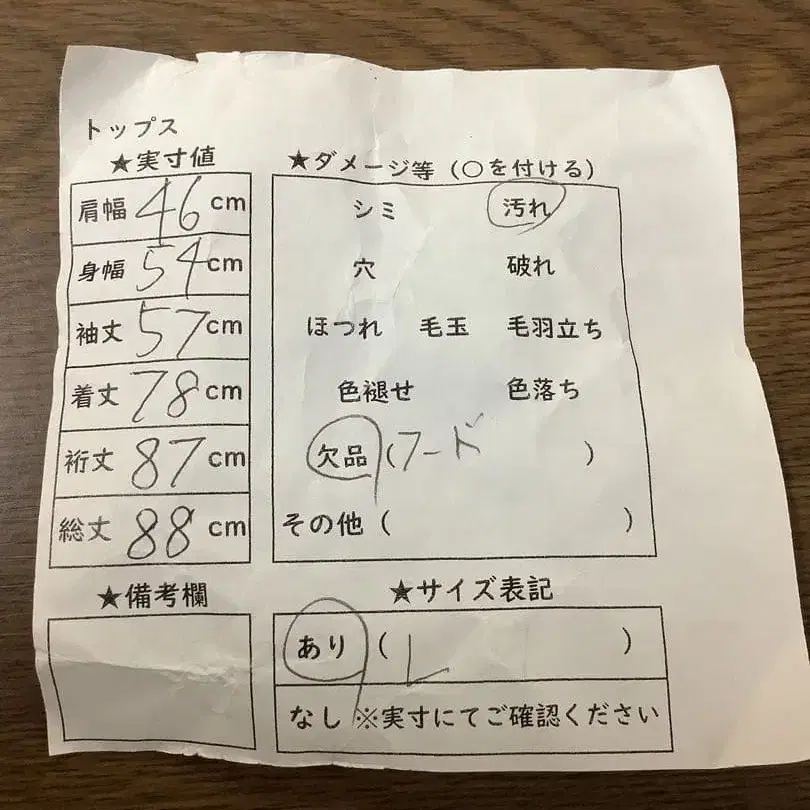 トップス
★実寸値
肩幅 46 cm
身幅 54 cm
袖丈 57 cm
着丈 78 cm
裄丈 87 cm
総丈 88 cm
★備考欄
★ダメージ等（○を付ける）
シミ 汚れ
穴 破れ
ほつれ 毛玉 毛羽立ち
色褪せ 色落ち
欠品（フード ）
その他（ ）
★サイズ表記
あり（ L ）
なし ※実寸にてご確認ください